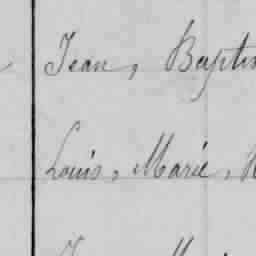 Jean, Baptis
Louis, Marie,